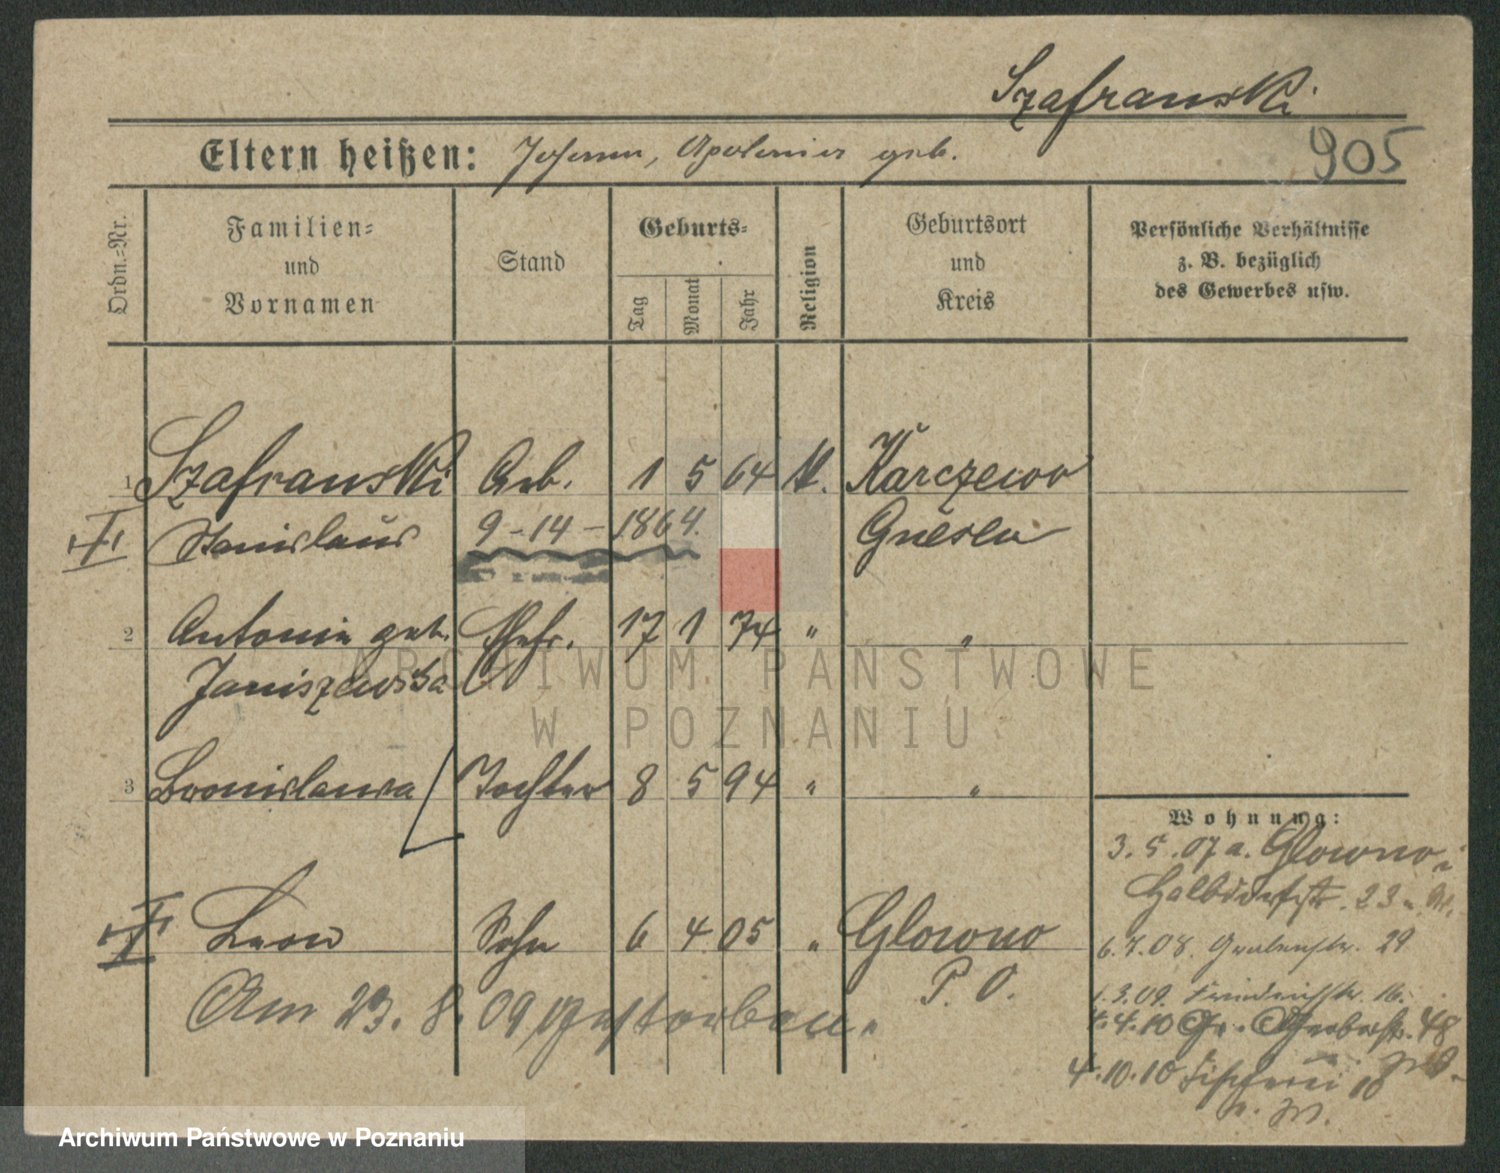 Szafranski
905
Eltern heißen: Johann, Apolonia geb.
Ordn.-Nr.
Familien- und Vornamen
Stand
Geburts-
Tag
Monat
Jahr
Religion
Geburtsort und Kreis
Persönliche Verhältnisse z. B. bezüglich des Gewerbes usw.
1 Szafranski Arb. 1 5 64 k. Karczewo
Stanislaus 9-14-1864. Gnesen
2 Antonie geb. Ehefr. 17 1 74 " "
Janiszewska
3 Bronislawa Tochter 8 5 94 " "
Leon Sohn 6 4 05 " Glowno
P. O.
Am 23. 8. 09 gestorben.
Wohnung:
3. 5. 07 a. Glowno
Halbdorfstr. 23
6.7.08. Grabenstr. 29
1.3.09. Friedrichstr. 16.
4.4.10 Gr. Gerberstr. 48
4.10.10 Fischerei 10
ARCHIWUM PAŃSTWOWE
W POZNANIU
Archiwum Państwowe w Poznaniu